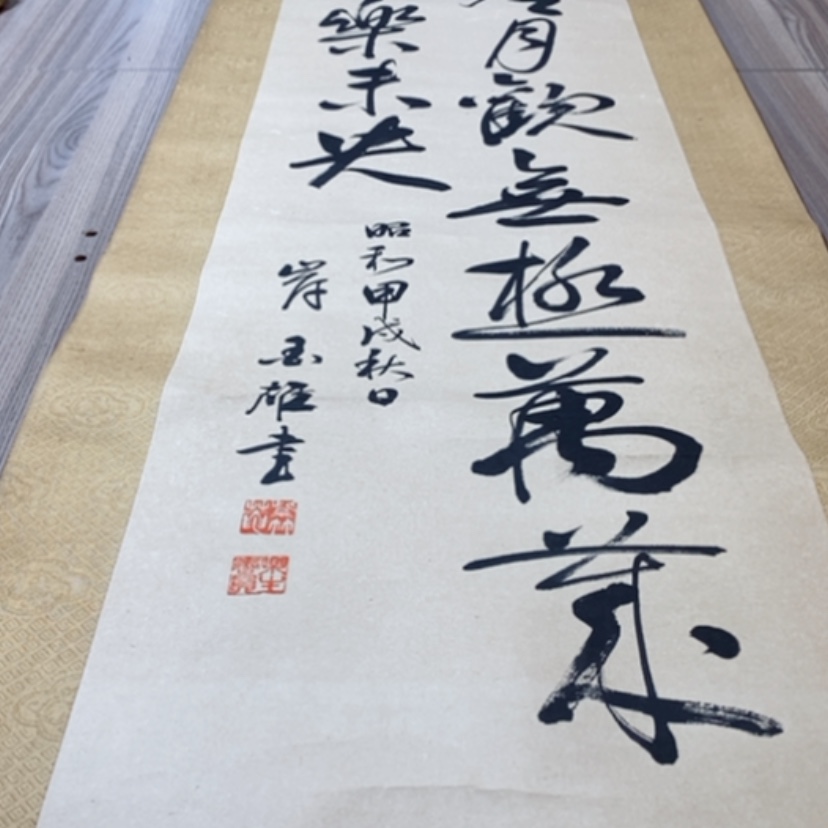 月歡無極萬歲
樂未央
昭和甲戌秋日
岸雄書